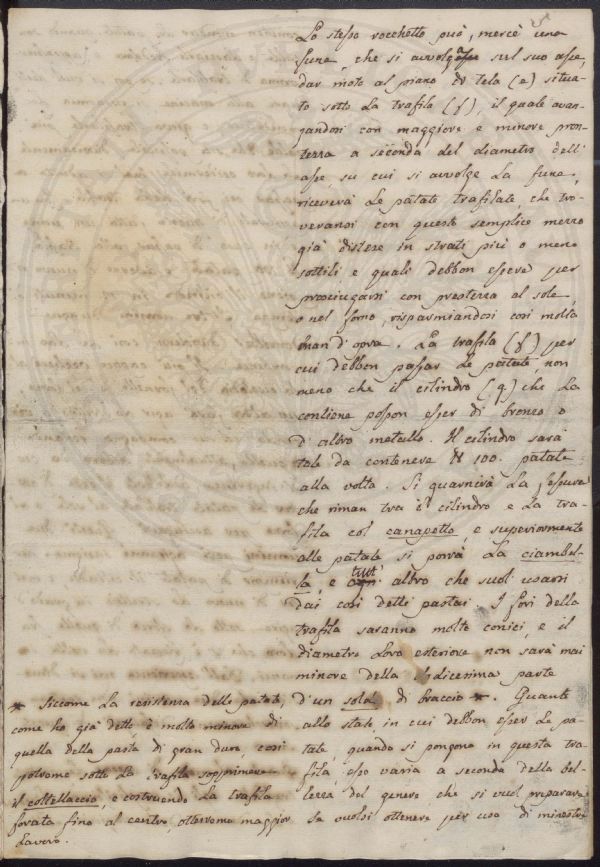 Lo stesso rocchetto può, mercè una
fune, che si avvolgesse sul suo asse,
dar moto al piano di tela (e) situa-
to sotto la trafila (f), il quale avan-
zandosi con maggiore e minore pron-
tezza a seconda del diametro dell'
asse, su cui si avvolge la fune,
riceverà le patate trafilate, che tro-
veransi con questo semplice mezzo
già distese in strati più o meno
sottili e quali debbon essere per
prosciugarsi con prestezza al sole,
o nel forno, risparmiandosi così molta
man d'opra. La trafila (f) per
cui debbon passar le patate, non
meno che il cilindro (q) che la
contiene posson esser di bronzo o
d'altro metallo. Il cilindro sarà
tale da contenere 100. patate
alla volta. Si guarnirà la fessura
che riman tra il cilindro e la tra-
fila col canapetto, e superiormente
alle patate si porrà la ciambel-
la, e tutt' altro che suol usarsi
dai così detti pastai. I fori della
trafila saranno molto conici, e il
diametro loro esteriore non sarà mai
minore della sedicesima parte
d'un soldo di braccio *. Quanto
allo stato, in cui debbon esser le pa-
tate, quando si pongono in questa tra-
fila, esso varia a seconda della bel-
lezza del genere che si vuol preparare.
Se vuolsi ottenere per uso di minestre
* Siccome la resistenza delle patate,
come ho già detto, è molto minore di
quella della pasta di gran duro, così
potremo sotto la trafila sopprimere
il coltellaccio, e costruendo la trafila
forata fino al centro, otterremo maggior
lavoro.